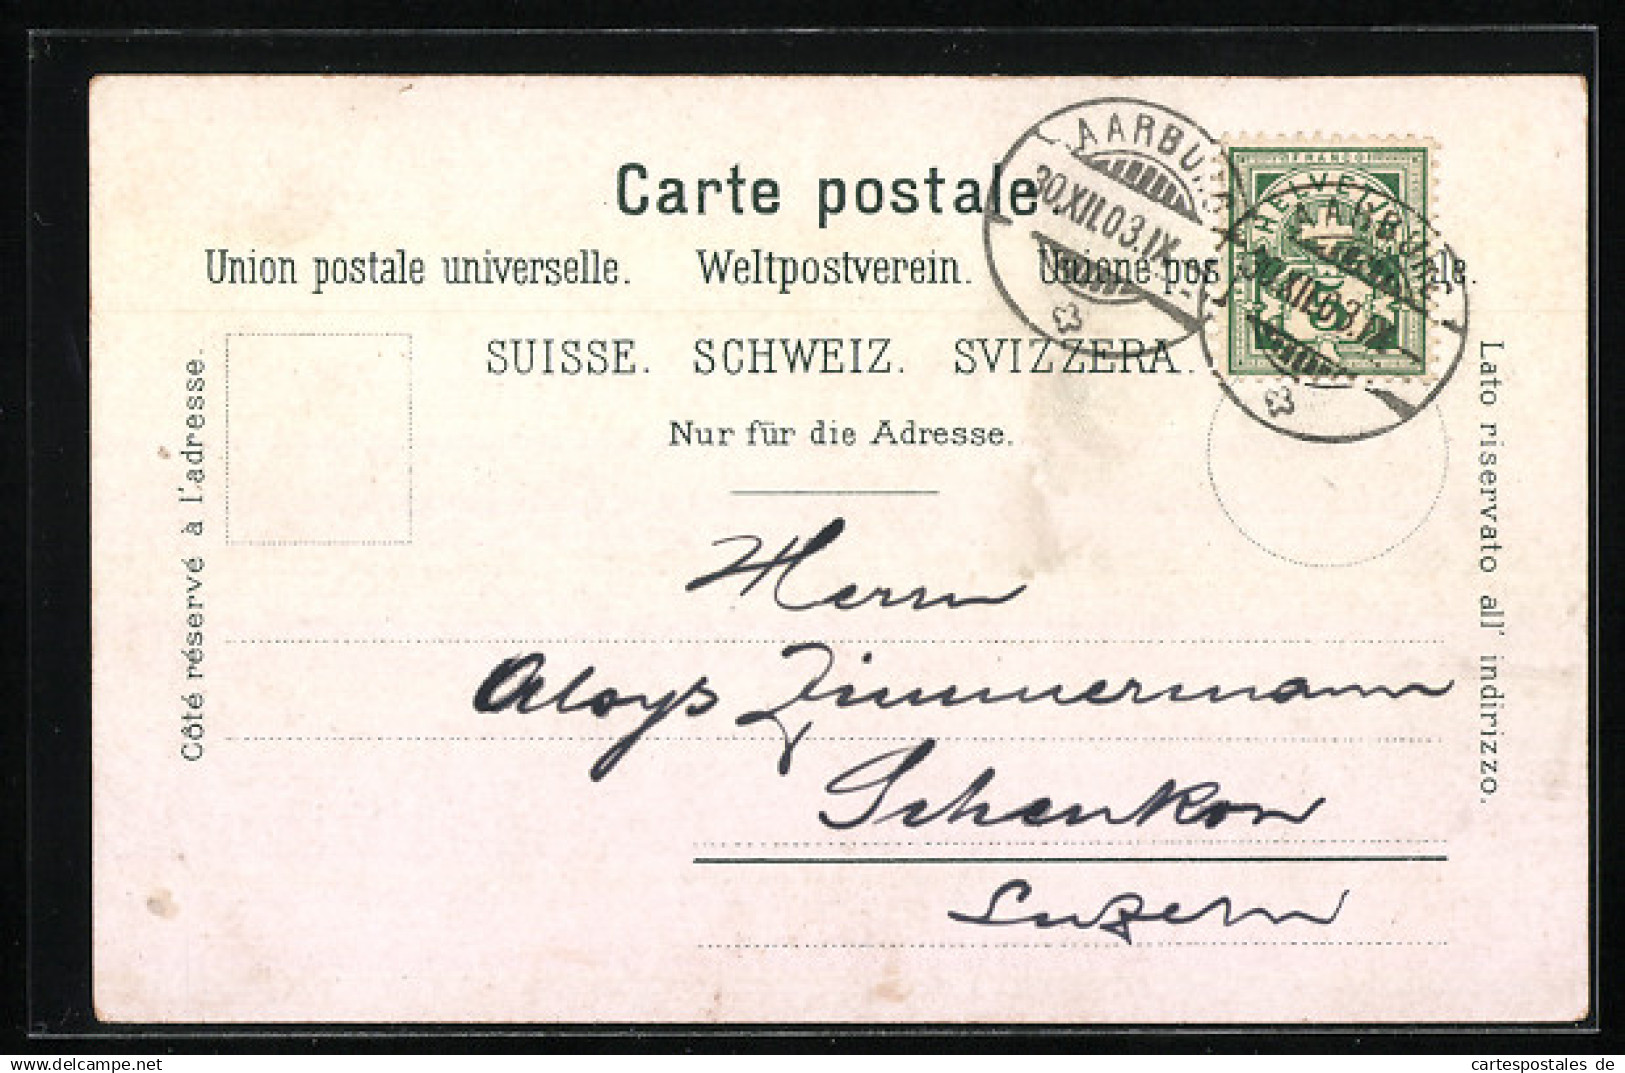 Carte postale.
Union postale universelle. Weltpostverein. Unione pos le.
SUISSE. SCHWEIZ. SVIZZERA.
Nur für die Adresse.
Côté réservé à l'adresse.
Lato riservato all' indirizzo.
AARBUR
30.XII.03.IX
FRANCO
HELVETIA
5
AARBURG
30.XII.03.IX
Herrn
Aloys Zimmermann
Schenkon
Luzern
cartespostales de